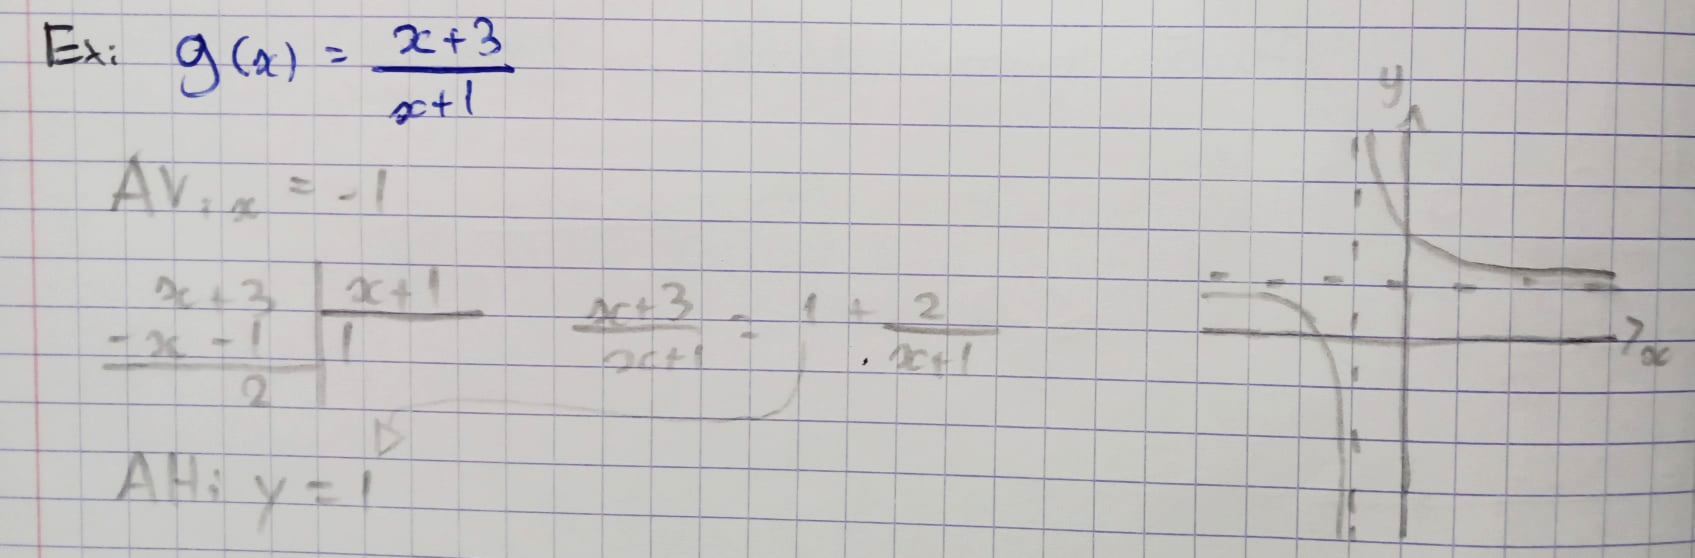 Ex: g(x) = x+3 / x+1
AV: x = -1
x+3 | x+1
-x-1 | 1
2
x+3 / x+1 = 1 + 2 / x+1
AH: y = 1
y
x